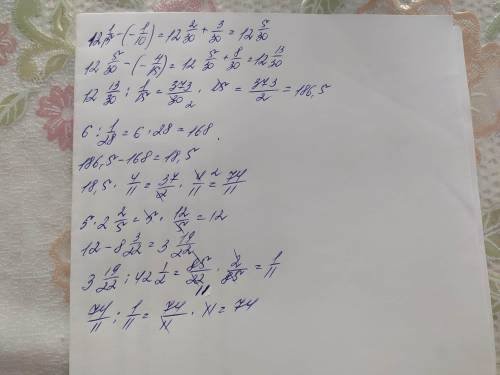 12 1/15 - (- 1/10) = 12 2/30 + 3/30 = 12 5/30
12 5/30 - (- 4/15) = 12 5/30 + 8/30 = 12 13/30
12 13/30 : 1/15 = 373/30 2 · 15 = 373/2 = 186,5
6 : 1/28 = 6 · 28 = 168
186,5 - 168 = 18,5
18,5 · 4/11 = 37/2 · 4/11 2 = 74/11
5 · 2 2/5 = 5 · 12/5 = 12
12 - 8 3/22 = 3 19/22
3 19/22 : 42 1/2 = 85/22 11 · 2/85 = 1/11
74/11 : 1/11 = 74/11 · 11 = 74